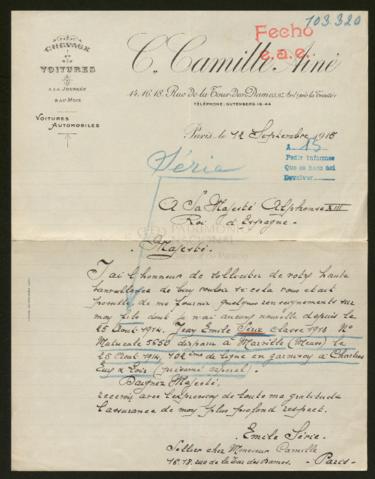 103.320
Fecho
e.a.e.
CHEVAUX
ET
VOITURES
A LA JOURNÉE
& AU MOIS
VOITURES
AUTOMOBILES
C. Camille Ainé
14.16.18. Rue de la Tour des Dames
TÉLÉPHONE: GUTENBERG 16-44
Paris, le 12 Septembre 1915
A 15
Pedir informes
Que se hace así
Devolver
Série
A Sa Majesté Alphonse XIII
Roi d'Espagne.
Majesté.
J'ai l'honneur de solliciter de votre haute
bienveillance de bien vouloir si cela vous était
possible de me fournir quelques renseignements sur
mon fils dont je n'ai aucune nouvelle depuis le
25 Août 1914. Jean Emile Série classe 1910 No
Matricule 5550 disparu à Marville (Meuse) le
25 Août 1914, 102ème de ligne en garnison à Chartres
Eure & Loir
Daignez Majesté.
recevoir avec l'expression de toute ma gratitude
l'assurance de mon plus profond respect.
Emile Série.
Sellier chez Monsieur Camille
16.18. rue de la Tour des Dames. - Paris -